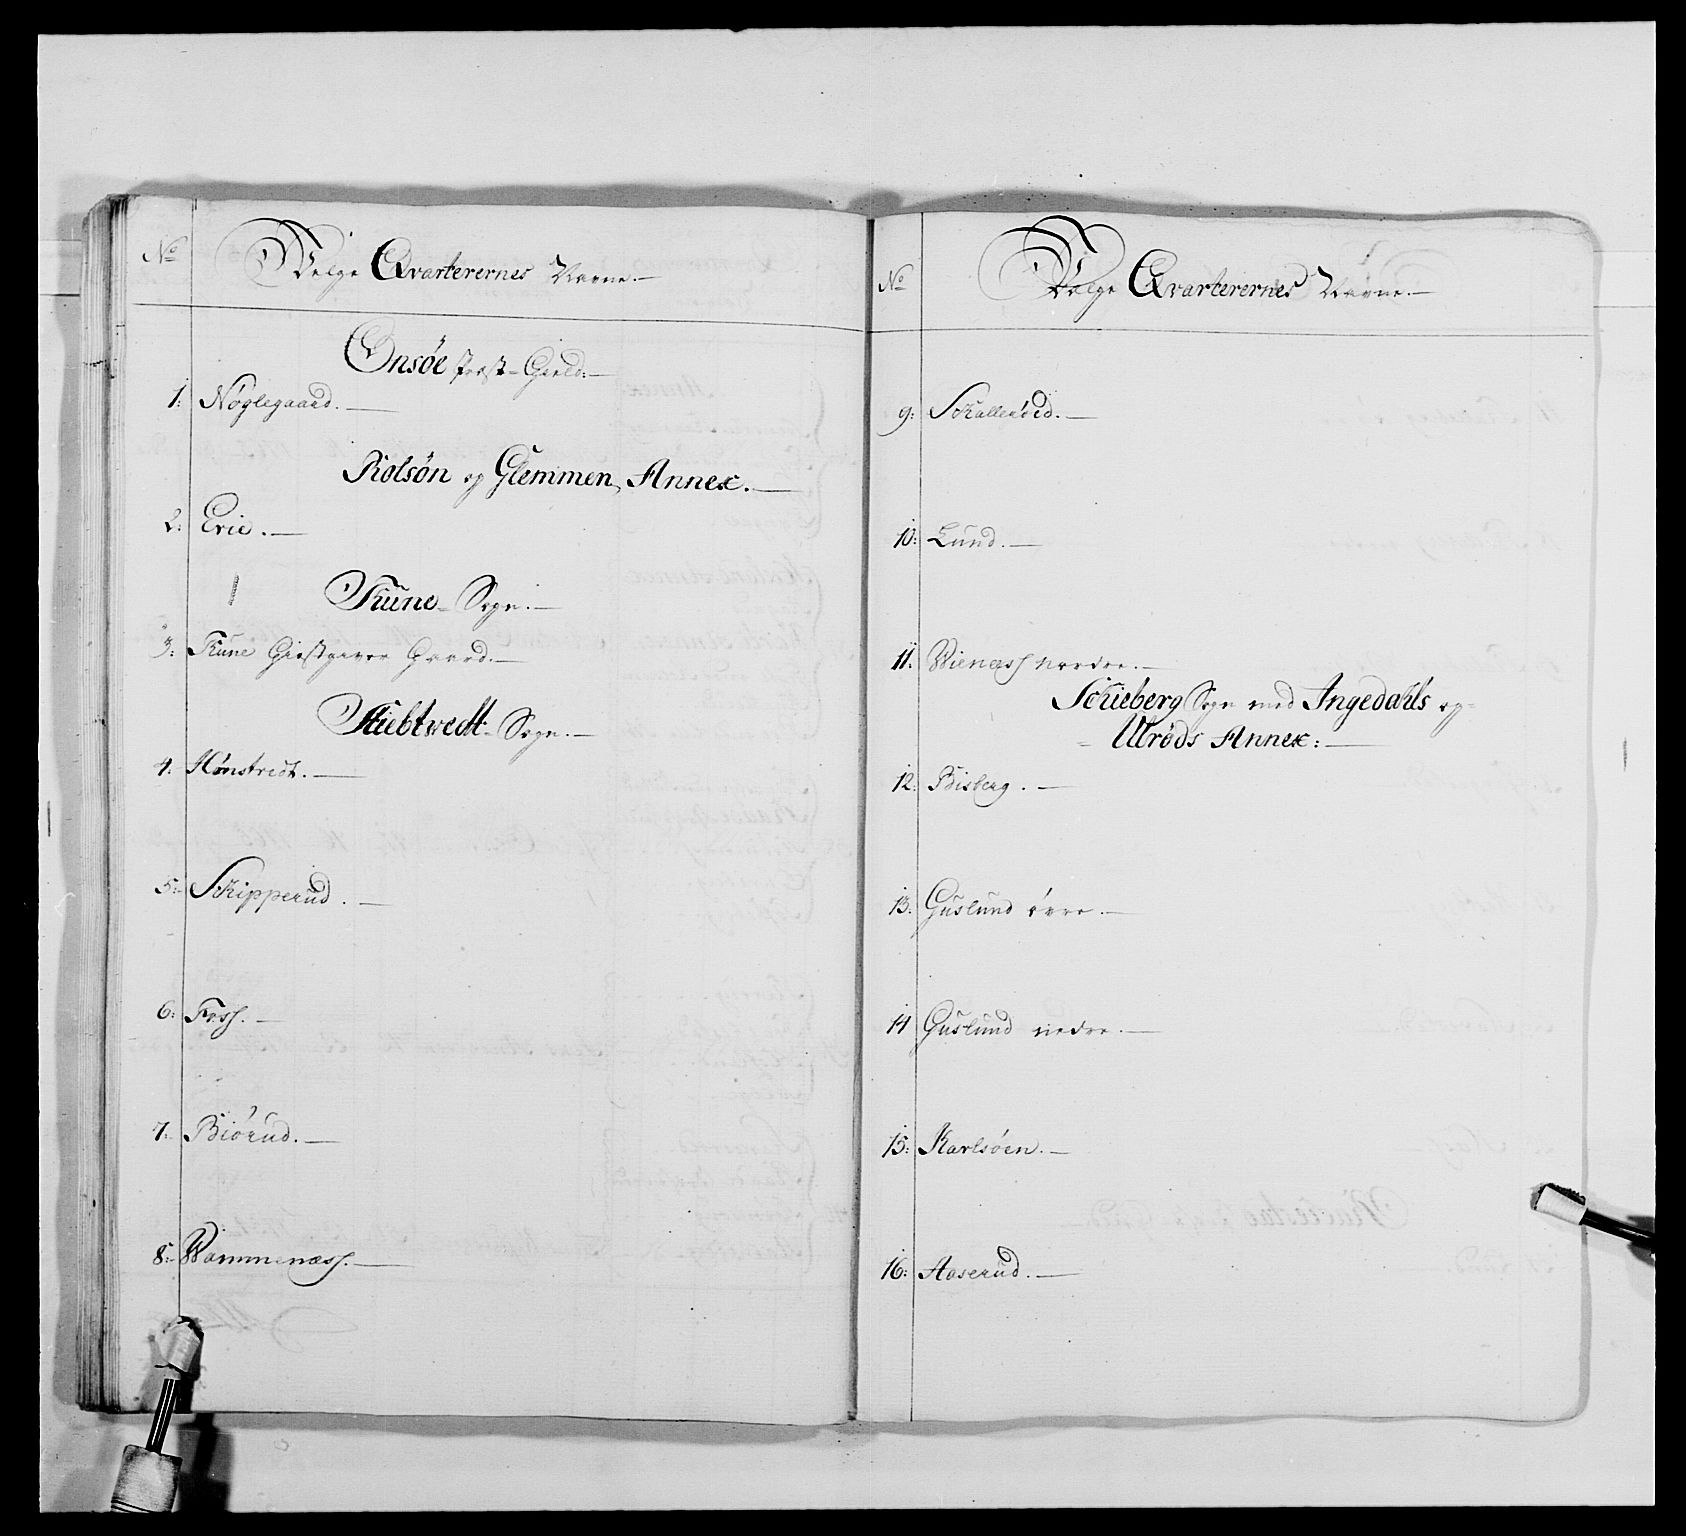 No Følge Qvarterernes Navne.
Onsøe Præste-Gield:
1: Nøglegaard.
Rolsøn og Glemmen, Annex.
2: Evie.
Thune Sogn.
3: Thune Giestgiver Gaard.
Skiebtvedt Sogn.
4: Hönstvedt.
5: Schipperud.
6: Foss.
7: Biørud.
8: Wammenæss.
No Følge Qvarterernes Navne.
9: Schallerød.
10: Lund.
11. Wienæss nordre.
Schieberg Sogn med Ingedahls og
Ulrøds Annex:
12: Bisberg.
13. Guslund övre.
14 Guslund nedre.
15: Karlsøen.
16: Aaserud.